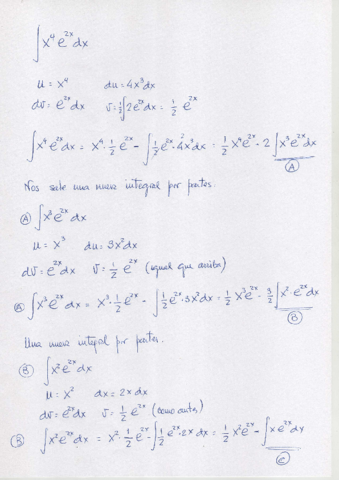 ∫x⁴e²ˣdx
u = x⁴ du = 4x³dx
dv = e²ˣdx v = ½∫2e²ˣdx = ½ e²ˣ
∫x⁴e²ˣdx = x⁴·½e²ˣ - ∫½e²ˣ·4x³dx = ½x⁴e²ˣ - 2∫x³e²ˣdx
(A)
Nos sale una nueva integral por partes.
(A) ∫x³e²ˣdx
u = x³ du = 3x²dx
dv = e²ˣdx v = ½ e²ˣ (igual que arriba)
(A) ∫x³e²ˣdx = x³·½e²ˣ - ∫½e²ˣ·3x²dx = ½x³e²ˣ - 3/2∫x²·e²ˣdx
(B)
Una nueva integral por partes.
(B) ∫x²e²ˣdx
u = x² dx = 2x dx
dv = e²ˣdx v = ½ e²ˣ (como antes)
(B) ∫x²e²ˣdx = x²·½e²ˣ - ∫½e²ˣ·2x dx = ½x²e²ˣ - ∫x e²ˣdx
(C)